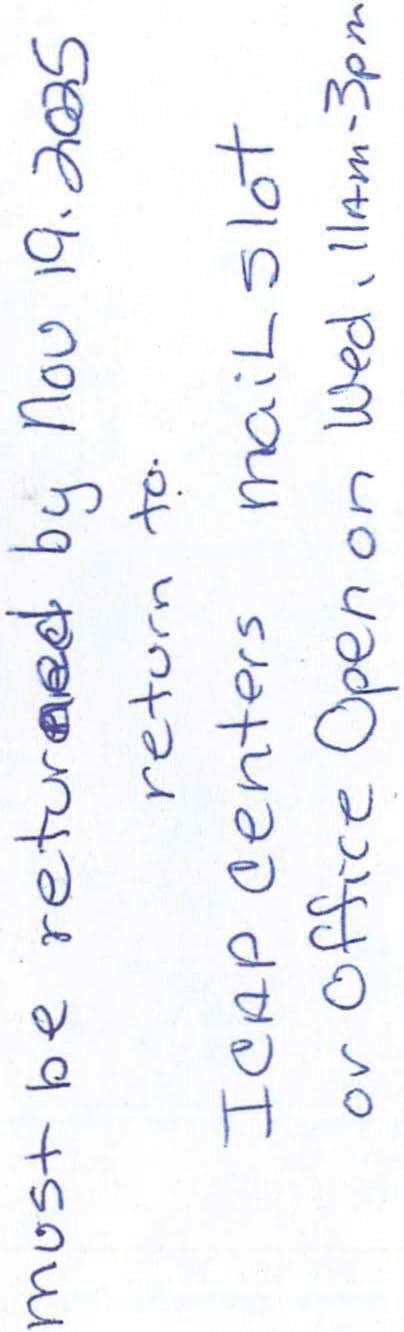 must be returned by Nov 19. 2025
return to.
ICAP Centers mail slot
or Office Open on Wed, 11am-3pm